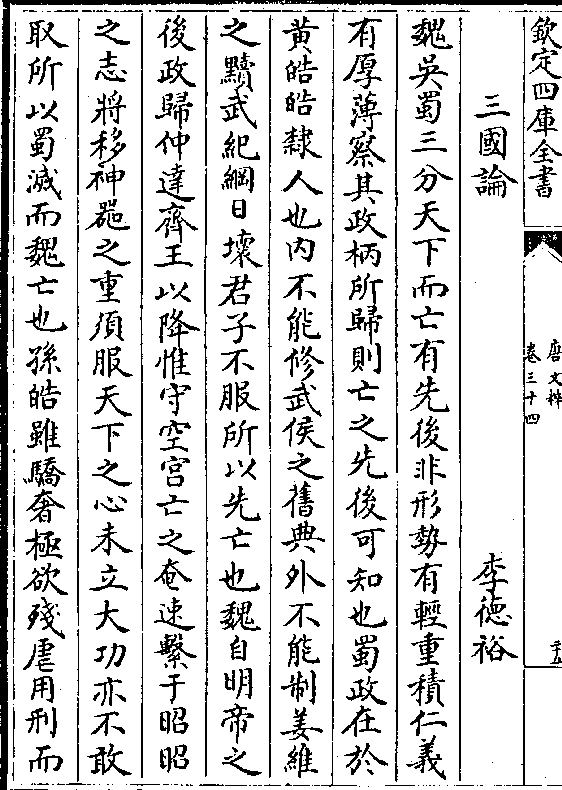 欽定四庫全書
唐文粹
卷三十四
二十五
三國論
李德裕
魏吳蜀三分天下而亡有先後非形勢有輕重積仁義
有厚薄察其政柄所歸則亡之先後可知也蜀政在於
黄皓皓隸人也内不能修武侯之舊典外不能制姜維
之黷武紀綱日壞君子不服所以先亡也魏自明帝之
後政歸仲達齊王以降惟守空宫亡之奄速繫于昭昭
之志將移神噐之重須服天下之心未立大功亦不敢
取所以蜀滅而魏亡也孫皓雖驕奢極欲殘虐用刑而